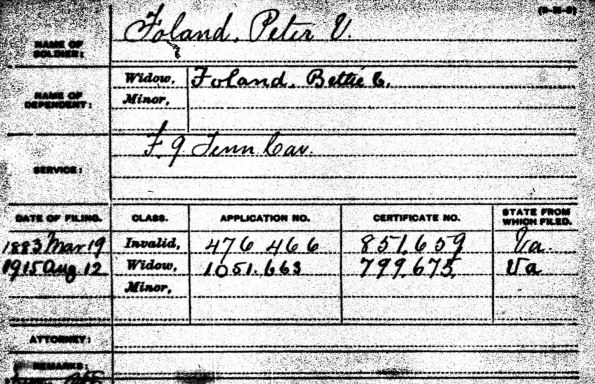 (3-M-3)
NAME OF SOLDIER: Foland, Peter V.
NAME OF DEPENDENT: Widow, Foland, Bettie C.
Minor,
SERVICE: F. 9 Tenn Cav.
DATE OF FILING. CLASS. APPLICATION NO. CERTIFICATE NO. STATE FROM WHICH FILED.
1883 Mar 19 Invalid, 476 466 851,659 Va.
1915 Aug 12 Widow, 1051.663 799,675. Va
Minor,
ATTORNEY:
REMARKS: